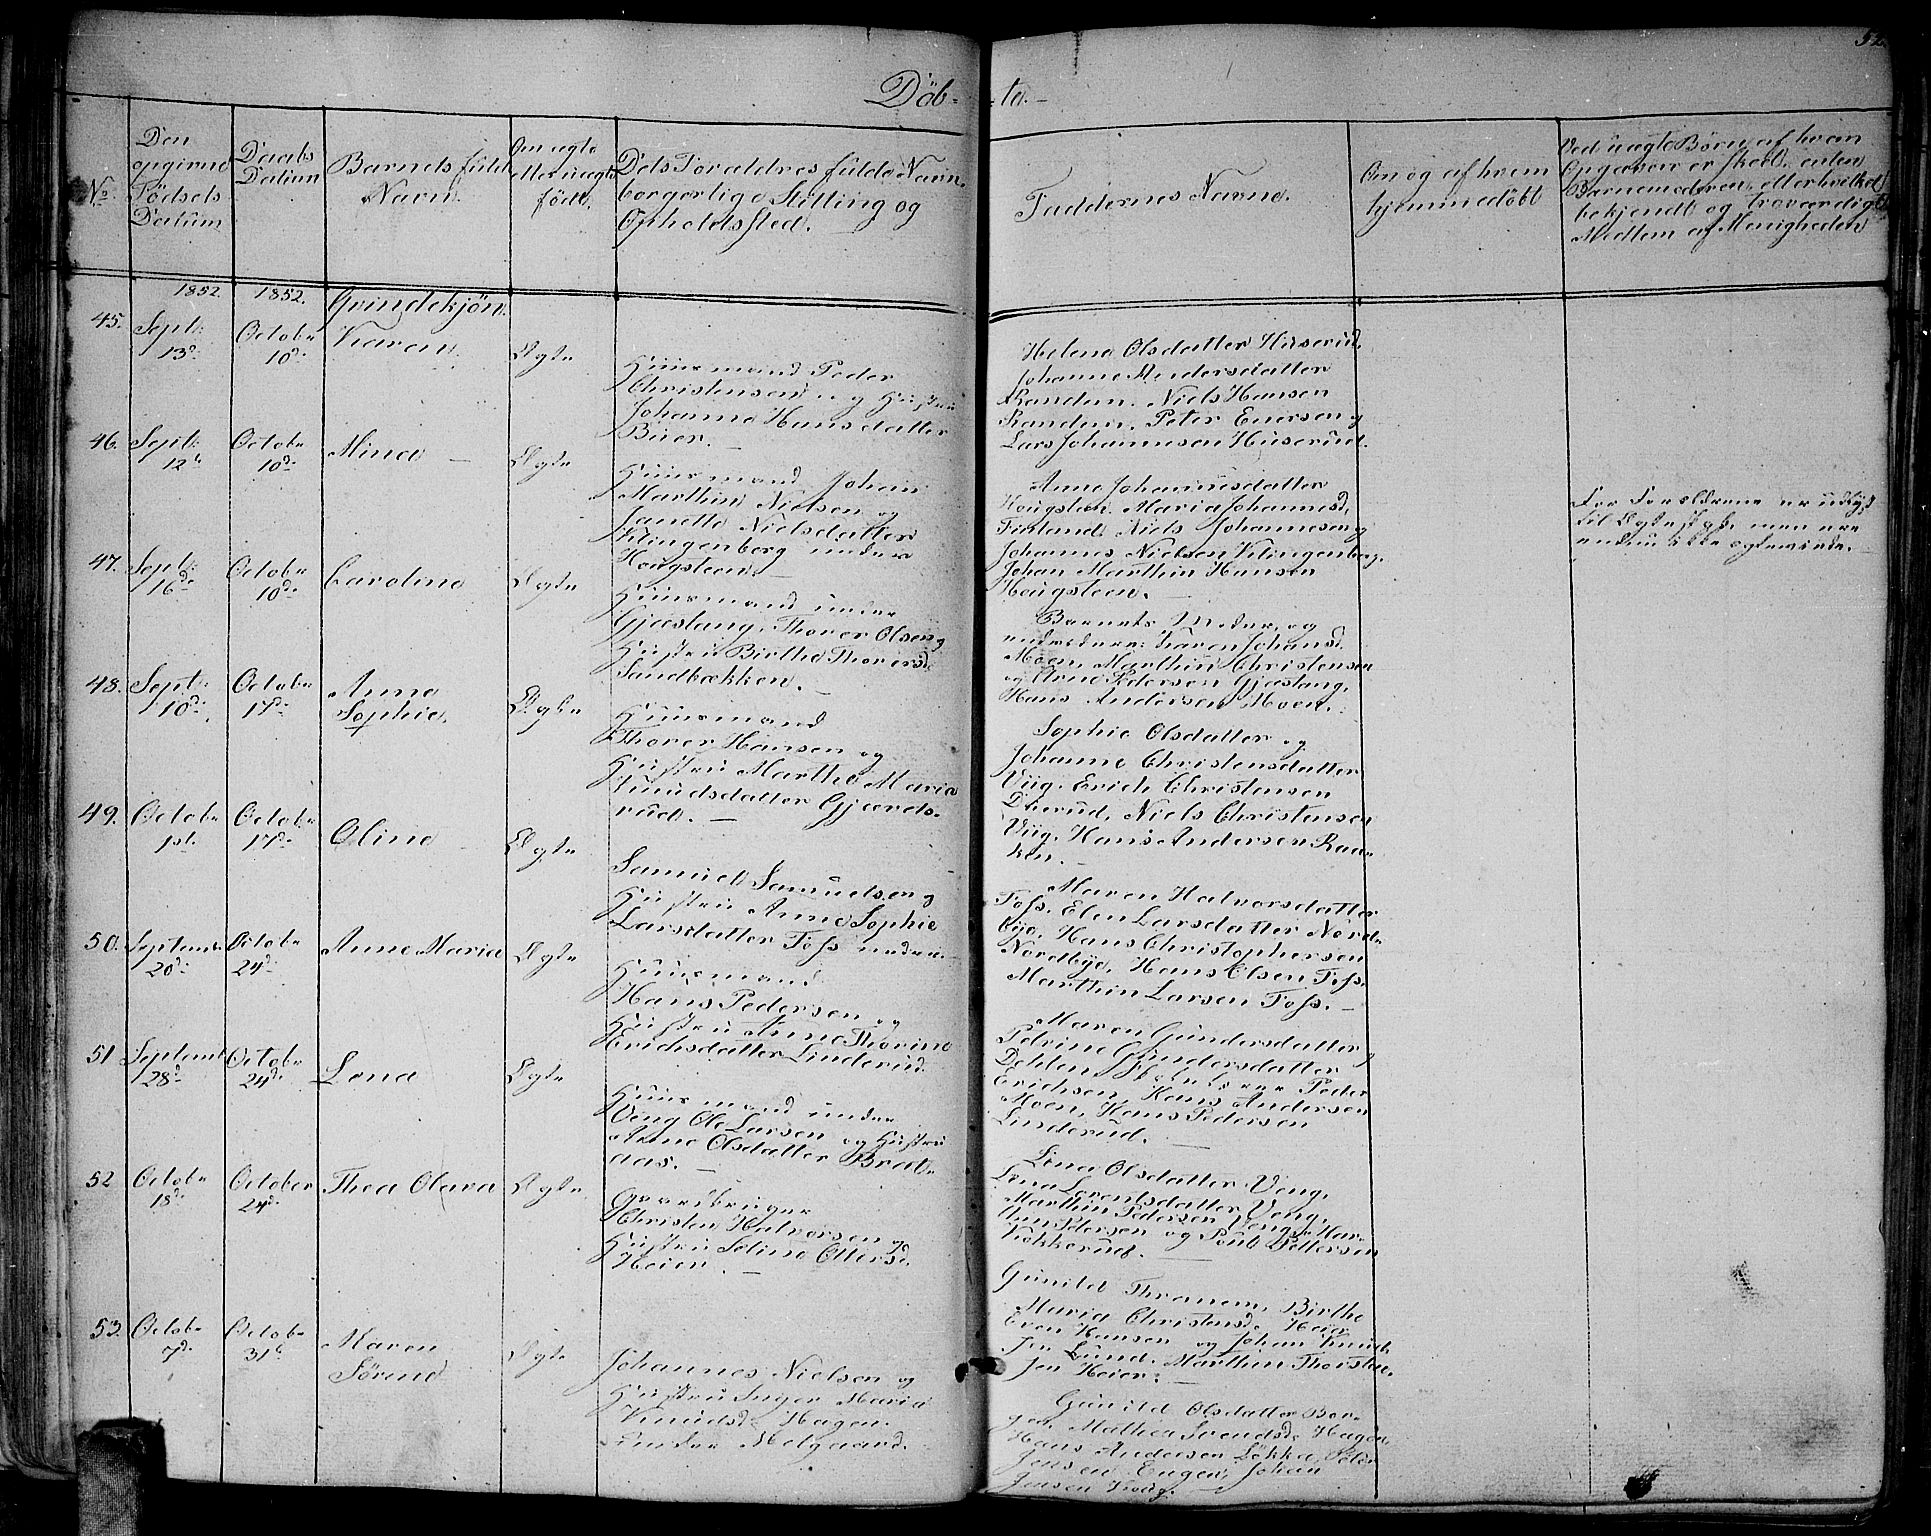 52.
Döb- te.
No.
Den
opgivne
Födsels
Datum
Daabs
Datum
Barnets fulde
Navn
Om ægte
eller uægte
födt.
Dets Forældres fulde Navn,
borgerlige Stilling og
Opholdssted.
Faddernes Navne.
Om og af hvem
hjemmedöbt
Ved uægte Börn af hvem
Opgaven er skeet, enten
Barnemoderen, eller hvilket
bekjendt og troværdigt
Medlem af Menigheden
1852. 1852. Qvindekjön.
45. Sept: 13d. Octobr 10d. Karen. Ægte
Huusmand Peder
Christensen og Hustru
Johanne Hansdatter
Buer. —
Helene Olsdatter Huserud,
Johanne Andersdatter
Randem. Niels Hansen
Randem. Peter Enersen og
Lars Johannesen Huserud.
46. Sept: 12te Octobr 10d. Mina — Ægte
Huusmand Johan
Marthin Nielsen og
Janette Nielsdatter
Klingenberg under
Hougsteen. —
Anne Johannesdatter
Hougsteen. Maria Johannesd.
Finland. Niels Johannesen og
Johannes Nielsen Klingenberg.
Johan Marthin Hansen
Hougsteen.
For Forældrene er udlyst
til Ægteskab, men ere
endnu ikke ægteviede. —
47. Sept: 16d. Octobr 10d. Caroline Ægte
Huusmand under
Gjæslang, Thorer Olsen og
Hustru Birthe Thorersd.
Sandbækken. —
Barnets Moder, og
Karen Johansd.
Moen, Marthin Christensen
og Arne Pedersen Gjæslang,
Hans Andersen Moen.
48. Sept: 10d. Octobr 17d. Anne
Sophie. Ægte
Huusmand
Thorer Hansen og
Hustru Marthe Maria
Knudsdatter Gjærds-
rud. —
Sophie Olsdatter og
Johanne Christensdatter
Viig. Erich Christensen
Niels Christensen
Viig. Hans Andersen Raa-
ken. —
49. Octobr 1st. Octobr 17d. Oline Ægte
Samuel Samuelsen og
Hustru Anne Sophie
Larsdatter Foss
Maren Halvorsdatter
Foss. Elen Larsdatter Nord-
bye, Hans Christophersen
Nordbye, Hans Olsen Foss.
Marthin Larsen Foss. —
50. Septembr 20d. Octobr 24d. Anne Maria Ægte
Huusmand
Hans Pedersen og
Hustru Anne Thorine
Erichsdatter Linderud.
Maren Gundersdatter
Petrine Gundersdatter
Dehlen. Peder
Erichsen, Hans Andersen
Moen, Hans Pedersen
Linderud. —
51 Septembr 28d. Octobr 24d. Lena Ægte
Huusmand under
Veng Ole Larsen og Hustru
Anne Olsdatter Brat-
aas. —
Lina Olsdatter Veng,
Lena Lorentsdatter Veng,
Marthin Pedersen Veng, Mar-
thin Pedersen og Poul Pettersen
Kokkerud. —
52 Octobr 18d. October 24d. Thea Olava Ægte
Gaardbruger
Christen Halvorsen og
Hustru Seline Ottersd.
Heier. —
Gunild Thranem, Birthe
Maria Christensd. Heier
Even Hansen og Johan Knud-
sen Lund. Marthin Thorsten-
sen Heier. —
53. Octobr 7d. Octobr 31te Maren
Sörine Ægte
Johannes Nielsen og
Hustru Inger Maria
Knudsd. Hagen
under Melgaard.
Gunild Olsdatter Bor-
gen, Mathea Svendsd. Hagen,
Hans Andersen Lökka, Peder
Jensen Engen, Johan
Jensen Haug.